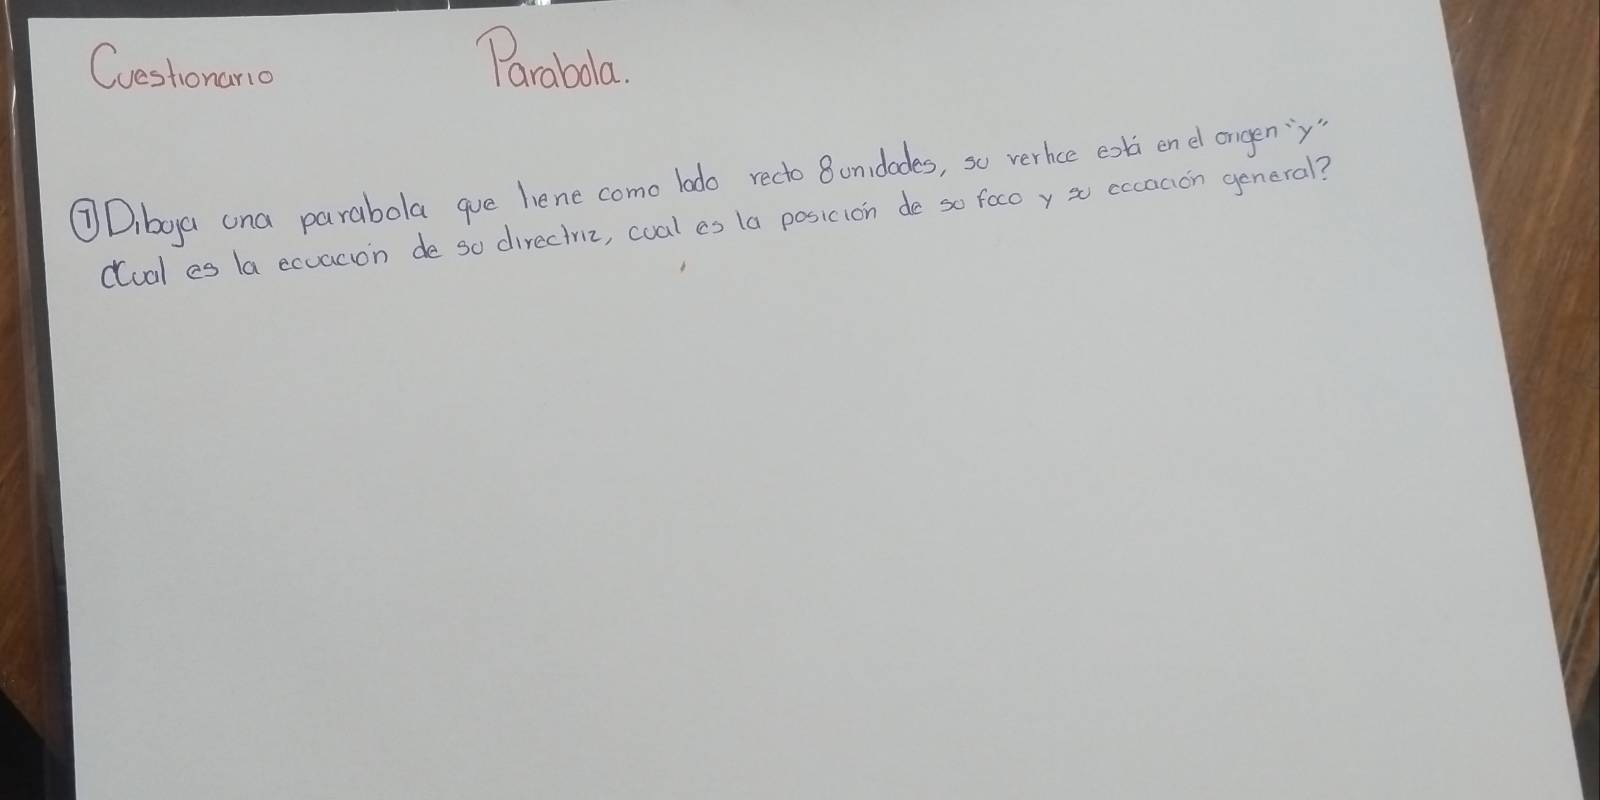 Cuestionario Parabola.
① Dibuja una parabola que tiene como lado recto 8 unidades, su vertice está en el origen "y"
¿Cual es la ecuación de su directriz, cual es la posición de su foco y su ecuación general?